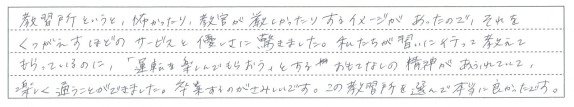 教習所というと、怖かったり、教官が厳しかったりするイメージがあったので、それを
くつがえすほどのサービスと優しさに驚きました。私たちが習いに行って教えて
もらっているのに、「運転を楽しんでもらおう」とするおもてなしの精神があふれていて、
楽しく通うことができました。卒業するのがさみしいです。この教習所を選んで本当に良かったです。